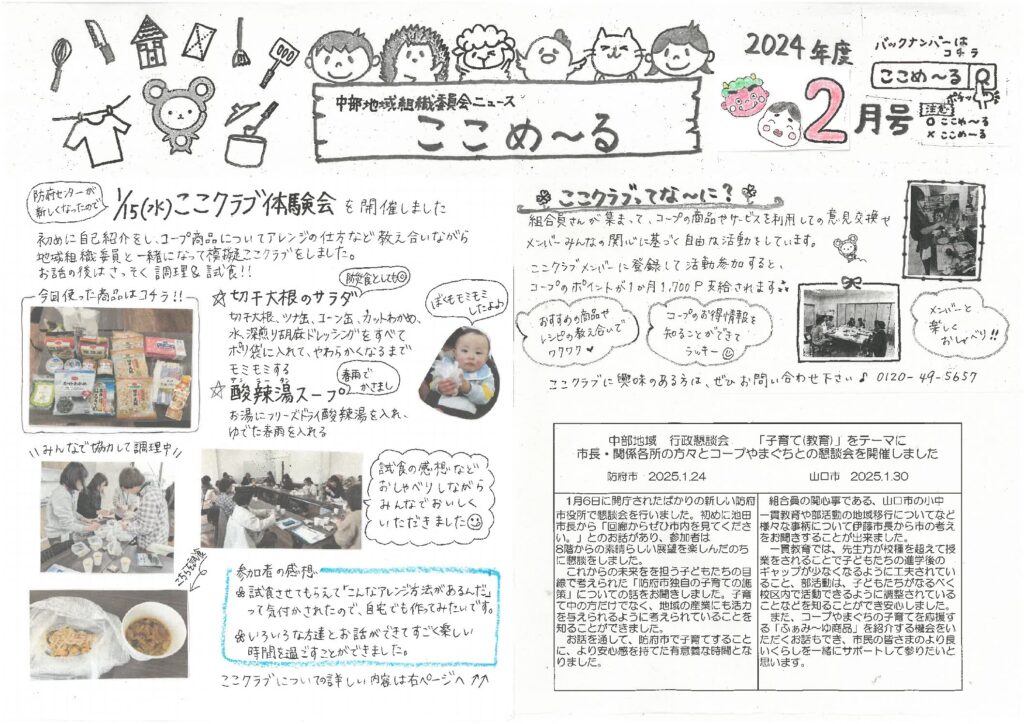 中部地域組織委員会ニュース
ここめ〜る
2024年度
2月号
バックナンバーは
コチラ
ここめ〜る
ポケッ
注意
○ ここめ〜る
× ここめーる
防府センターが
新しくなったので
1/15(水)ここクラブ体験会を開催しました
初めに自己紹介をし、コープ商品についてアレンジの仕方など教え合いながら
地域組織委員と一緒になって模擬ここクラブをしました。
お話の後はさっそく調理&試食!!
今回使った商品はコチラ!!
☆切干大根のサラダ
防災食としても
切干大根、ツナ缶、コーン缶、カットわかめ、
水、深煎り胡麻ドレッシングをすべて
ポリ袋に入れて、やわらかくなるまで
モミモミする
ぼくもモミモミ
したよ♪
☆酸辣湯スープ
サンラータン
春雨で
かさまし
お湯にフリーズドライ酸辣湯を入れ、
ゆでた春雨を入れる
\\みんなで協力して調理中//
試食の感想など
おしゃべりしながら
みんなでおいしく
いただきました
こちらを試食
参加者の感想
試食させてもらえて「こんなアレンジ方法があるんだ」
って気付かされたので、自宅でも作ってみたいです。
いろいろな方達とお話ができてすごく楽しい
時間を過ごすことができました。
ここクラブについての詳しい内容は右ページへ↑↑
ここクラブってな〜に?
組合員さんが集まって、コープの商品やサービスを利用しての意見交換や
メンバーみんなの関心に基づく自由な活動をしています。
ここクラブメンバーに登録して活動参加すると、
コープのポイントが1か月1,700P支給されます
おすすめの商品や
レシピの教え合いで
ワクワク♥
コープのお得情報を
知ることができて
ラッキー
メンバーと
楽しく
おしゃべり!!
ここクラブに興味のある方は、ぜひお問い合わせ下さい♪ 0120-49-5657
中部地域 行政懇談会 「子育て(教育)」をテーマに
市長・関係各所の方々とコープやまぐちとの懇談会を開催しました
防府市 2025.1.24 山口市 2025.1.30
1月6日に開庁されたばかりの新しい防府
市役所で懇談会を行いました。初めに池田
市長から「回廊からぜひ市内を見てくださ
い。」とのお話があり、参加者は
8階からの素晴らしい展望を楽しんだのち
に懇談をしました。
これからの未来をを担う子どもたちの目
線で考えられた「防府市独自の子育ての施
策」についての話をお聞きしました。子育
て中の方だけでなく、地域の産業にも活力
を与えられるように考えられていることを
知ることができました。
お話を通して、防府市で子育てすること
に、より安心感を持てた有意義な時間とな
りました。
組合員の関心事である、山口市の小中
一貫教育や部活動の地域移行についてなど
様々な事柄について伊藤市長から市の考え
をお聞きすることが出来ました。
一貫教育では、先生方が校種を超えて授
業をされることで子どもたちの進学後の
ギャップが少なくなるように工夫されてい
ること、部活動は、子どもたちがなるべく
校区内で活動できるように調整されている
ことなどを知ることができ安心しました。
また、コープやまぐちの子育てを応援す
る「ふぁみ〜ゆ商品」を紹介する機会をい
ただくお話もでき、市民の皆さまのより良
いくらしを一緒にサポートして参りたいと
思います。